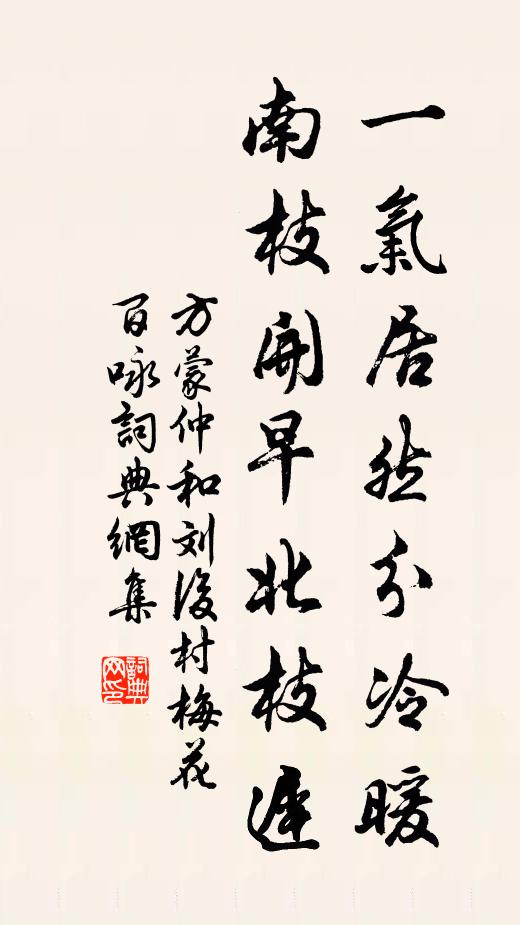 一氣居然分冷暖
南枝開早北枝遲
方蒙仲和刘後村梅花
百咏詞典網集
詞典網印